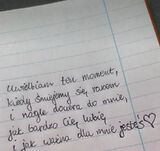 uwielbiam ten moment,
kiedy śmiejemy się razem
i nagle dociera do mnie,
jak bardzo Cię lubię
i jak ważna dla mnie jesteś ♡